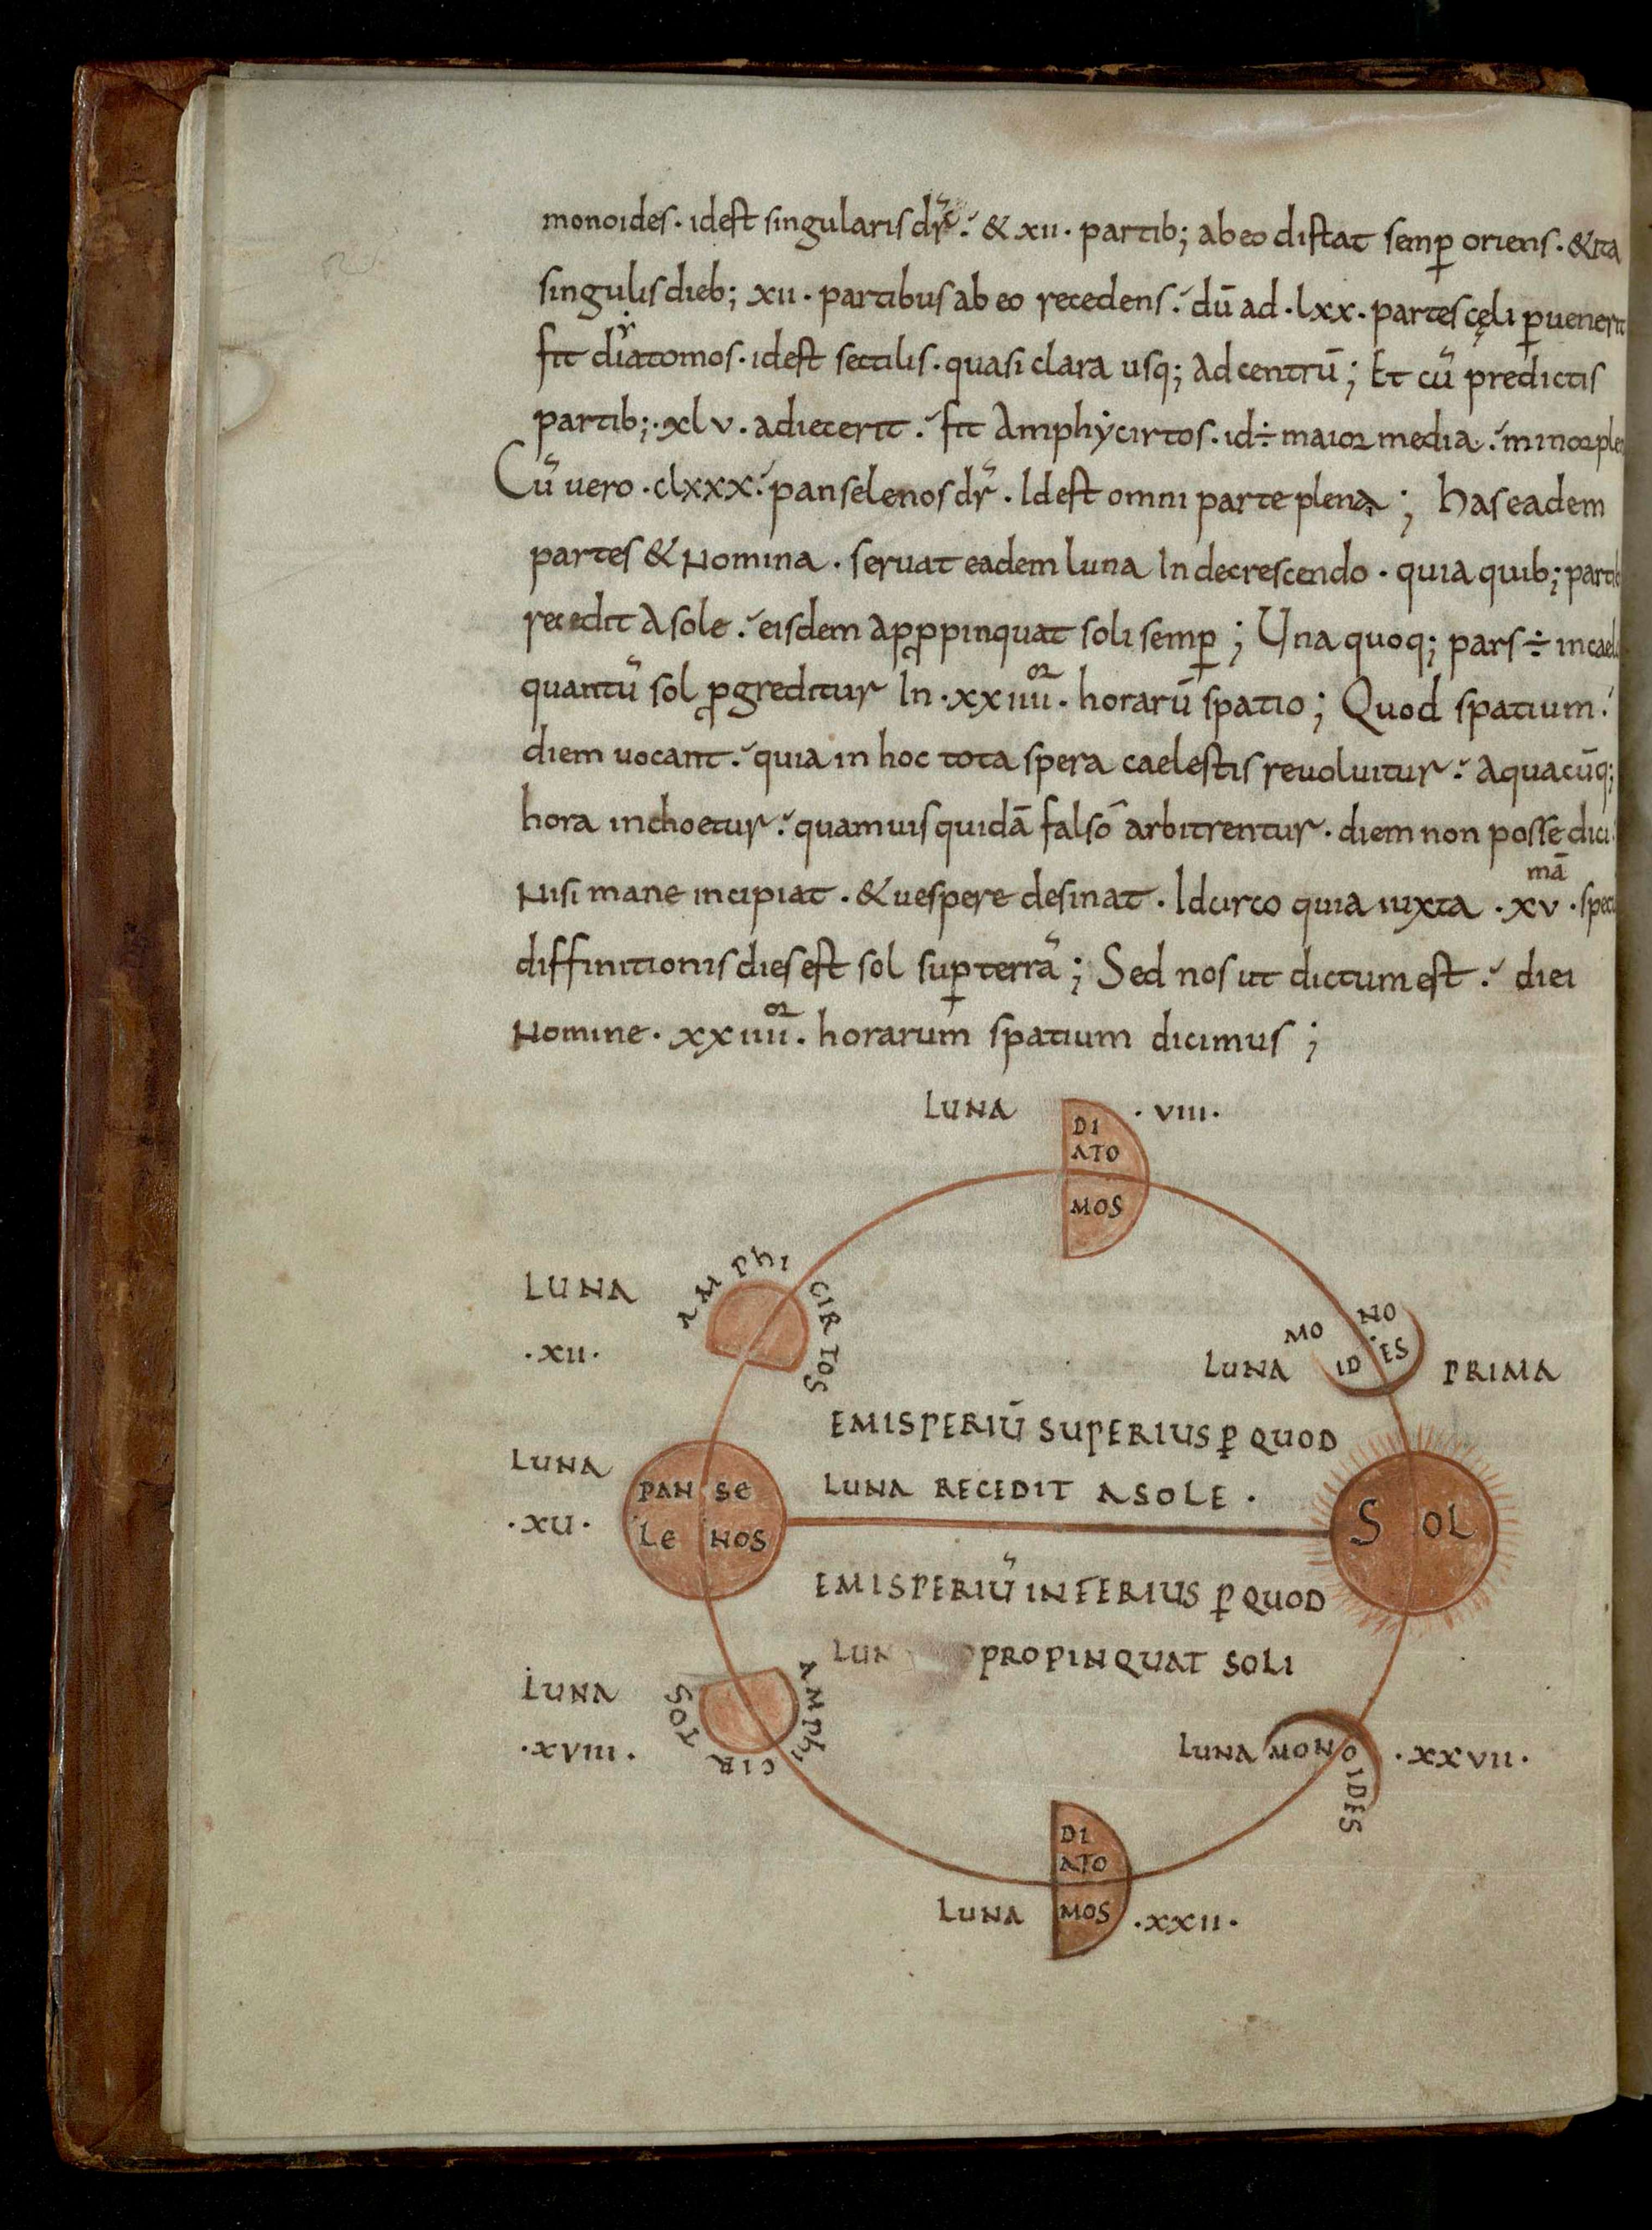 monoides. idest singularis dr̄. & xii. partib; ab eo distat semp oriens. & ita
singulis dieb; xii. partibus ab eo recedens. dū ad .lxx. partes cęli puenerit
fit diatomos. idest sectilis. quasi clara usq; ad centrū; Et cū predictis
partib;. xlv. adiecerit. fit Amphycirtos. id÷ maior media. minor ple
Cū uero .clxxx. panselenos dr̄. Idest omni parte plena; has eadem
partes & Nomina. seruat eadem luna In decrescendo. quia quib; partib
recedit A sole. eisdem appropinquat soli semp; Una quoq; pars ÷ in cael
quantū sol pgreditur In .xxiiii.or horarū spatio; Quod spatium.
diem uocant. quia in hoc tota spera caelestis reuoluitur. Aquacūq;
hora inchoetur. quamuis quidā falso arbitrentur. diem non posse dici
Nisi mane incipiat. & uespere desinat. Idcirco quia iuxta .xv.mā spec
diffinitionis dies est sol sup terrā; Sed nos ut dictum est. diei
Nomine. xxiiii.or horarum spatium dicimus;
LUNA .VIII.
DI
ATO
MOS
AMPHI CIRTOS
LUNA
.XII.
MO NO
ID ES
LUNA PRIMA
EMISPERIŪ SUPERIUS P QUOD
LUNA RECEDIT A SOLE.
LUNA
.XU.
PAN SE
LE NOS
S OL
EMISPERIŪ INFERIUS P QUOD
LUN PROPINQUAT SOLI
LUNA
.XVIII.
AMPHI CIR TOS
LUNA MONOIDES .XXVII.
DI
ATO
MOS
LUNA .XXII.